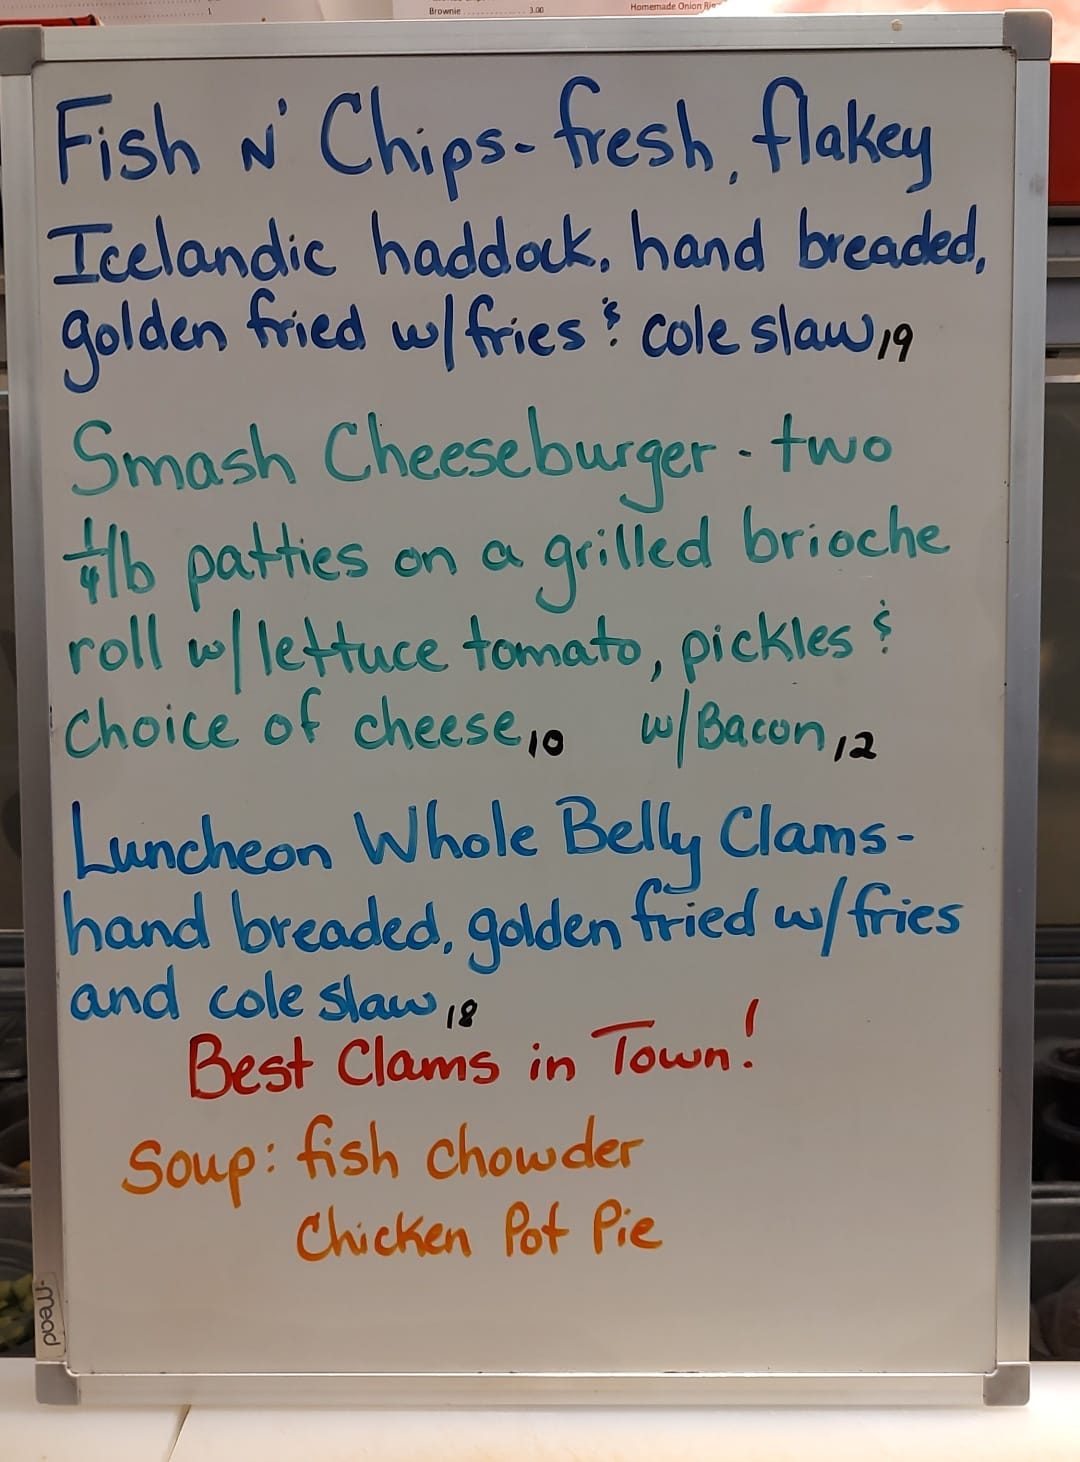 Brownie ............... 3.00
Homemade Onion
1
Fish N' Chips- fresh, flakey
Icelandic haddock, hand breaded,
golden fried w/fries & cole slaw, 19
Smash Cheeseburger - two
1/4 lb patties on a grilled brioche
roll w/ lettuce tomato, pickles &
choice of cheese, 10 w/Bacon, 12
Luncheon Whole Belly Clams-
hand breaded, golden fried w/fries
and cole slaw, 18
Best Clams in Town!
Soup: fish chowder
Chicken Pot Pie
Mead